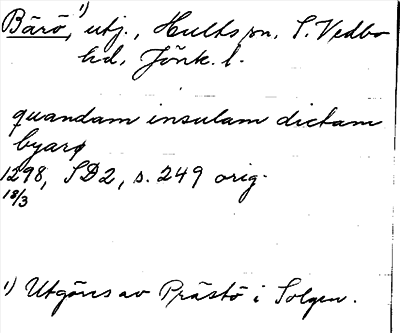 Bärö,¹⁾ utj., Hults sn, S. Vedbo
hd, Jönk. l.
quandam insulam dictam
byarø
1298, SD2, s. 249 orig.
18/3
¹⁾ Utgöres av Prästö i Solgen.